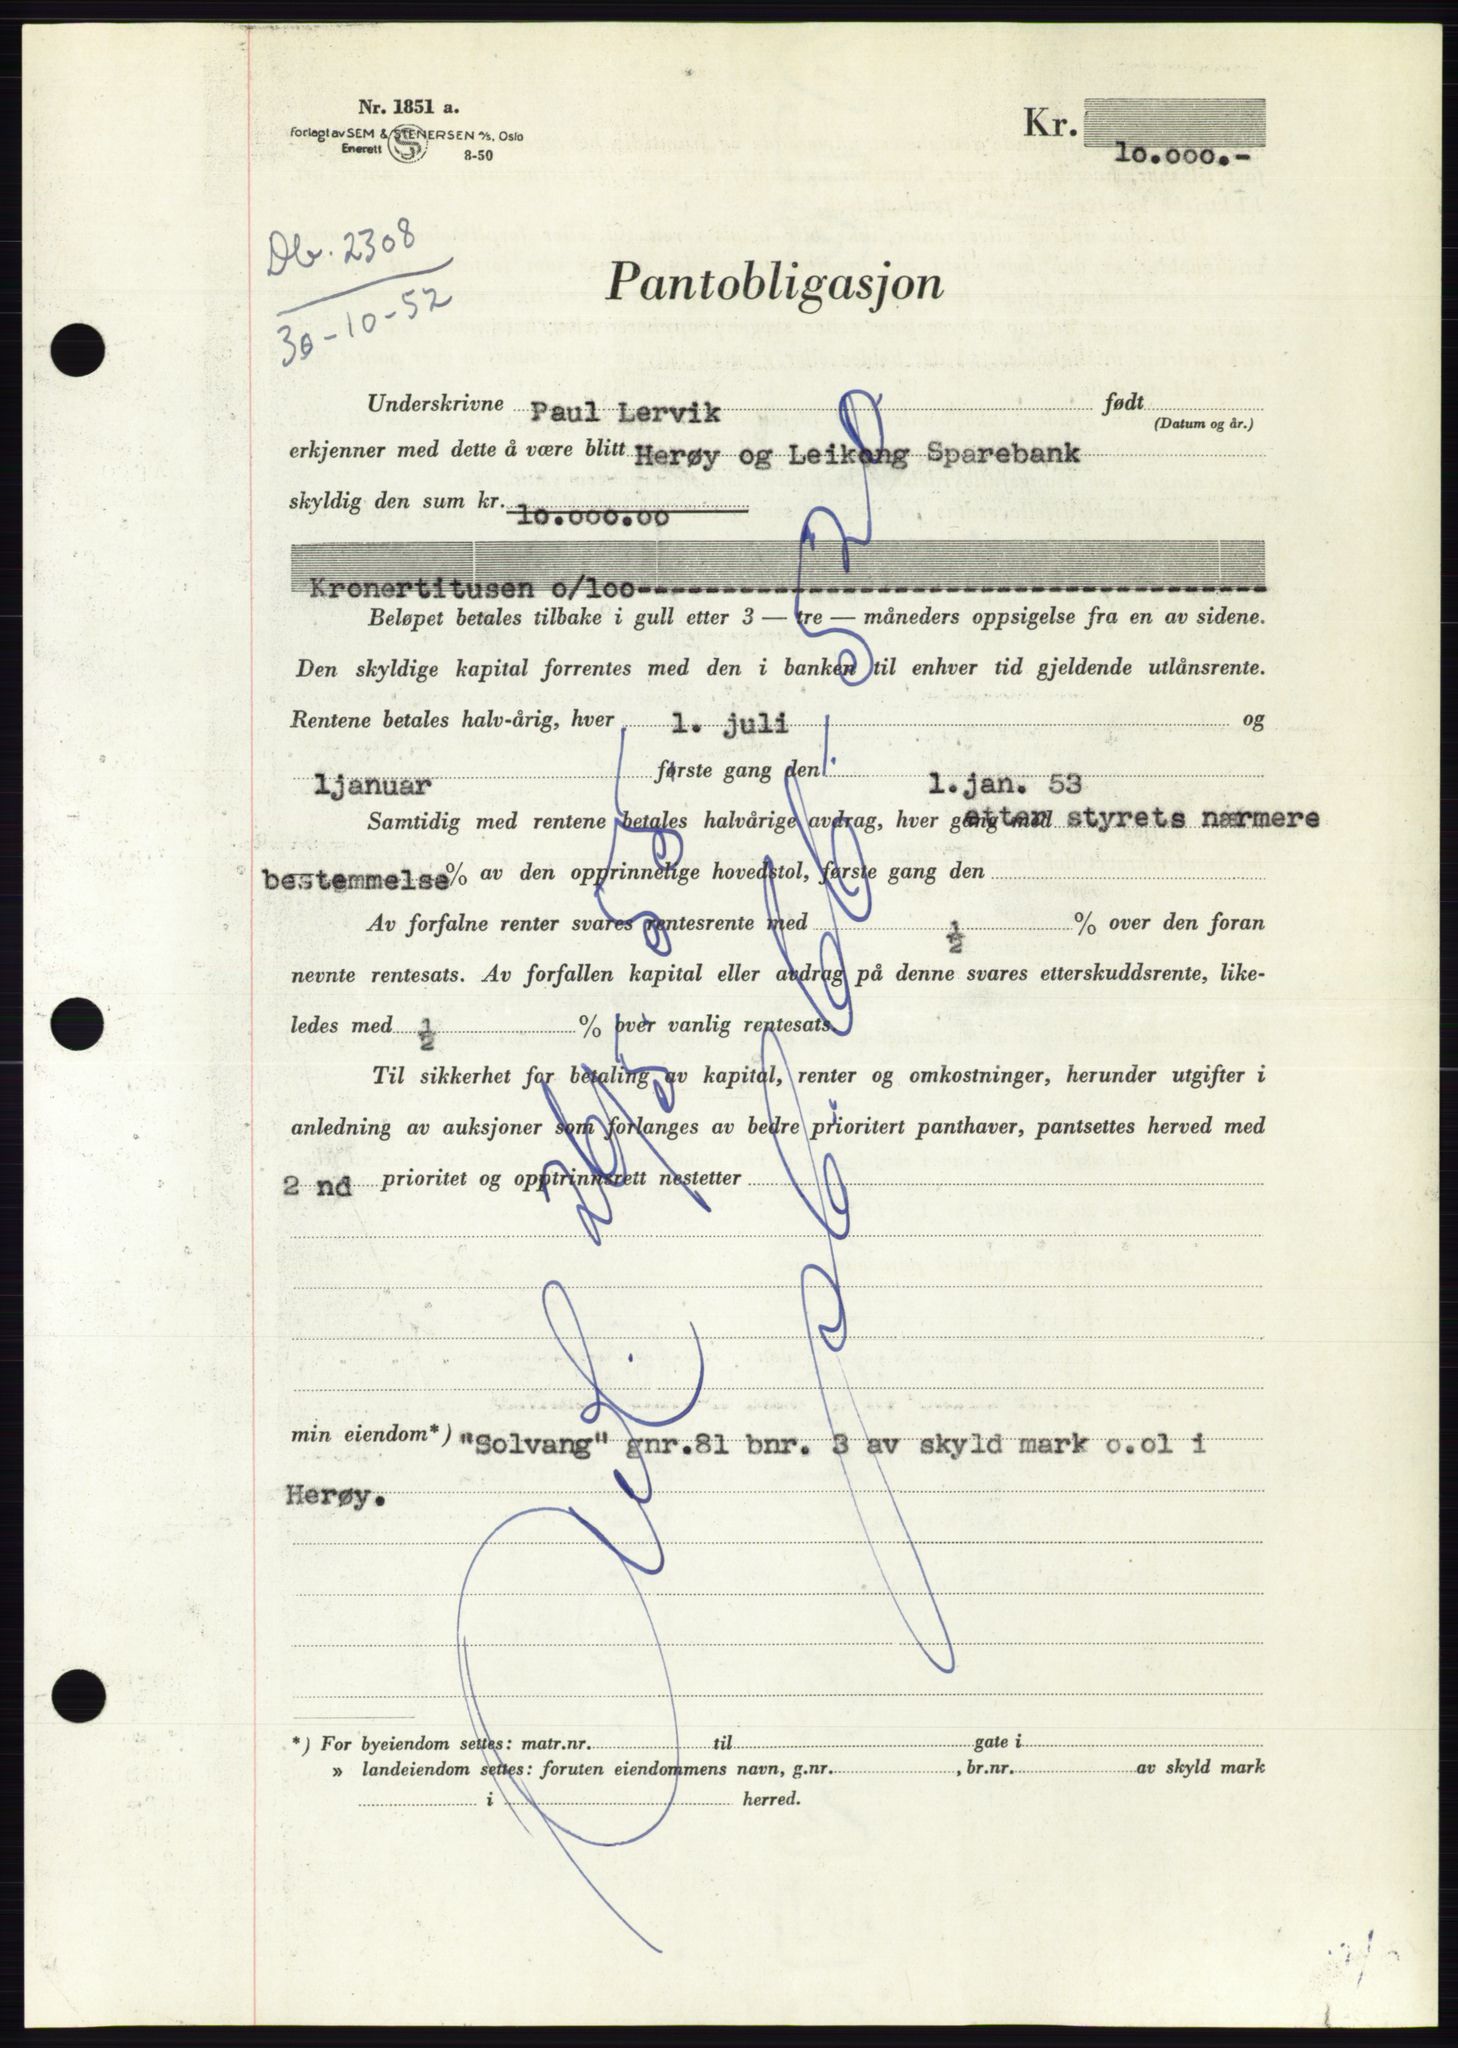 Nr. 1851 a.
Forlagt av SEM & STENERSEN A/S, Oslo
Enerett
8-50
Kr.
10.000.-
Db. 2308
30-10-52
Pantobligasjon
Underskrivne Paul Lervik født
(Datum og år.)
erkjenner med dette å være blitt Herøy og Leikong Sparebank
skyldig den sum kr. 10.000.00
Kronertitusen o/loo------------------------------------
Beløpet betales tilbake i gull etter 3 — tre — måneders oppsigelse fra en av sidene.
Den skyldige kapital forrentes med den i banken til enhver tid gjeldende utlånsrente.
Rentene betales halv-årig, hver 1. juli og
1januar første gang den 1.jan. 53
Samtidig med rentene betales halvårige avdrag, hver gang med etter styrets nærmere
bestemmelse % av den opprinnelige hovedstol, første gang den
Av forfalne renter svares rentesrente med ½ % over den foran
nevnte rentesats. Av forfallen kapital eller avdrag på denne svares etterskuddsrente, like-
ledes med ½ % over vanlig rentesats.
Til sikkerhet for betaling av kapital, renter og omkostninger, herunder utgifter i
anledning av auksjoner som forlanges av bedre prioritert panthaver, pantsettes herved med
2 nd prioritet og opptrinnsrett nestetter
min eiendom*) "Solvang" gnr.81 bnr. 3 av skyld mark o.ol i
Herøy.
*) For byeiendom settes: matr.nr. til gate i
» landeiendom settes: foruten eiendommens navn, g.nr. , br.nr. av skyld mark
i herred.